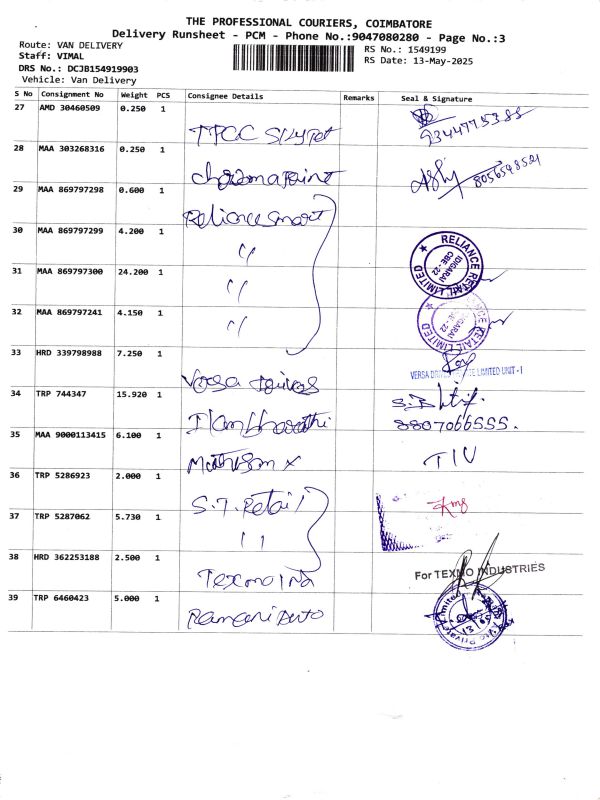 THE PROFESSIONAL COURIERS, COIMBATORE
Delivery Runsheet - PCM - Phone No.:9047080280 - Page No.:3
Route: VAN DELIVERY
Staff: VIMAL
DRS No.: DCJB154919903
Vehicle: Van Delivery
RS No.: 1549199
RS Date: 13-May-2025
S No Consignment No Weight PCS Consignee Details Remarks Seal & Signature
27 AMD 30460509 0.250 1
9344775388
28 MAA 303268316 0.250 1
8056598501
29 MAA 869797298 0.600 1 Reliance Smart
30 MAA 869797299 4.200 1 "
RELIANCE RETAIL LIMITED
IDIGARAI
CBE - 22
31 MAA 869797300 24.200 1 "
32 MAA 869797241 4.150 1 "
33 HRD 339798988 7.250 1 Versa Drives
34 TRP 744347 15.920 1 Ilam bharathi
8807066555.
35 MAA 9000113415 6.100 1
36 TRP 5286923 2.000 1 S.T. Retail
37 TRP 5287062 5.730 1 "
38 HRD 362253188 2.500 1 Texmo Ind
For TEXMO INDUSTRIES
39 TRP 6460423 5.000 1 Ramani Auto